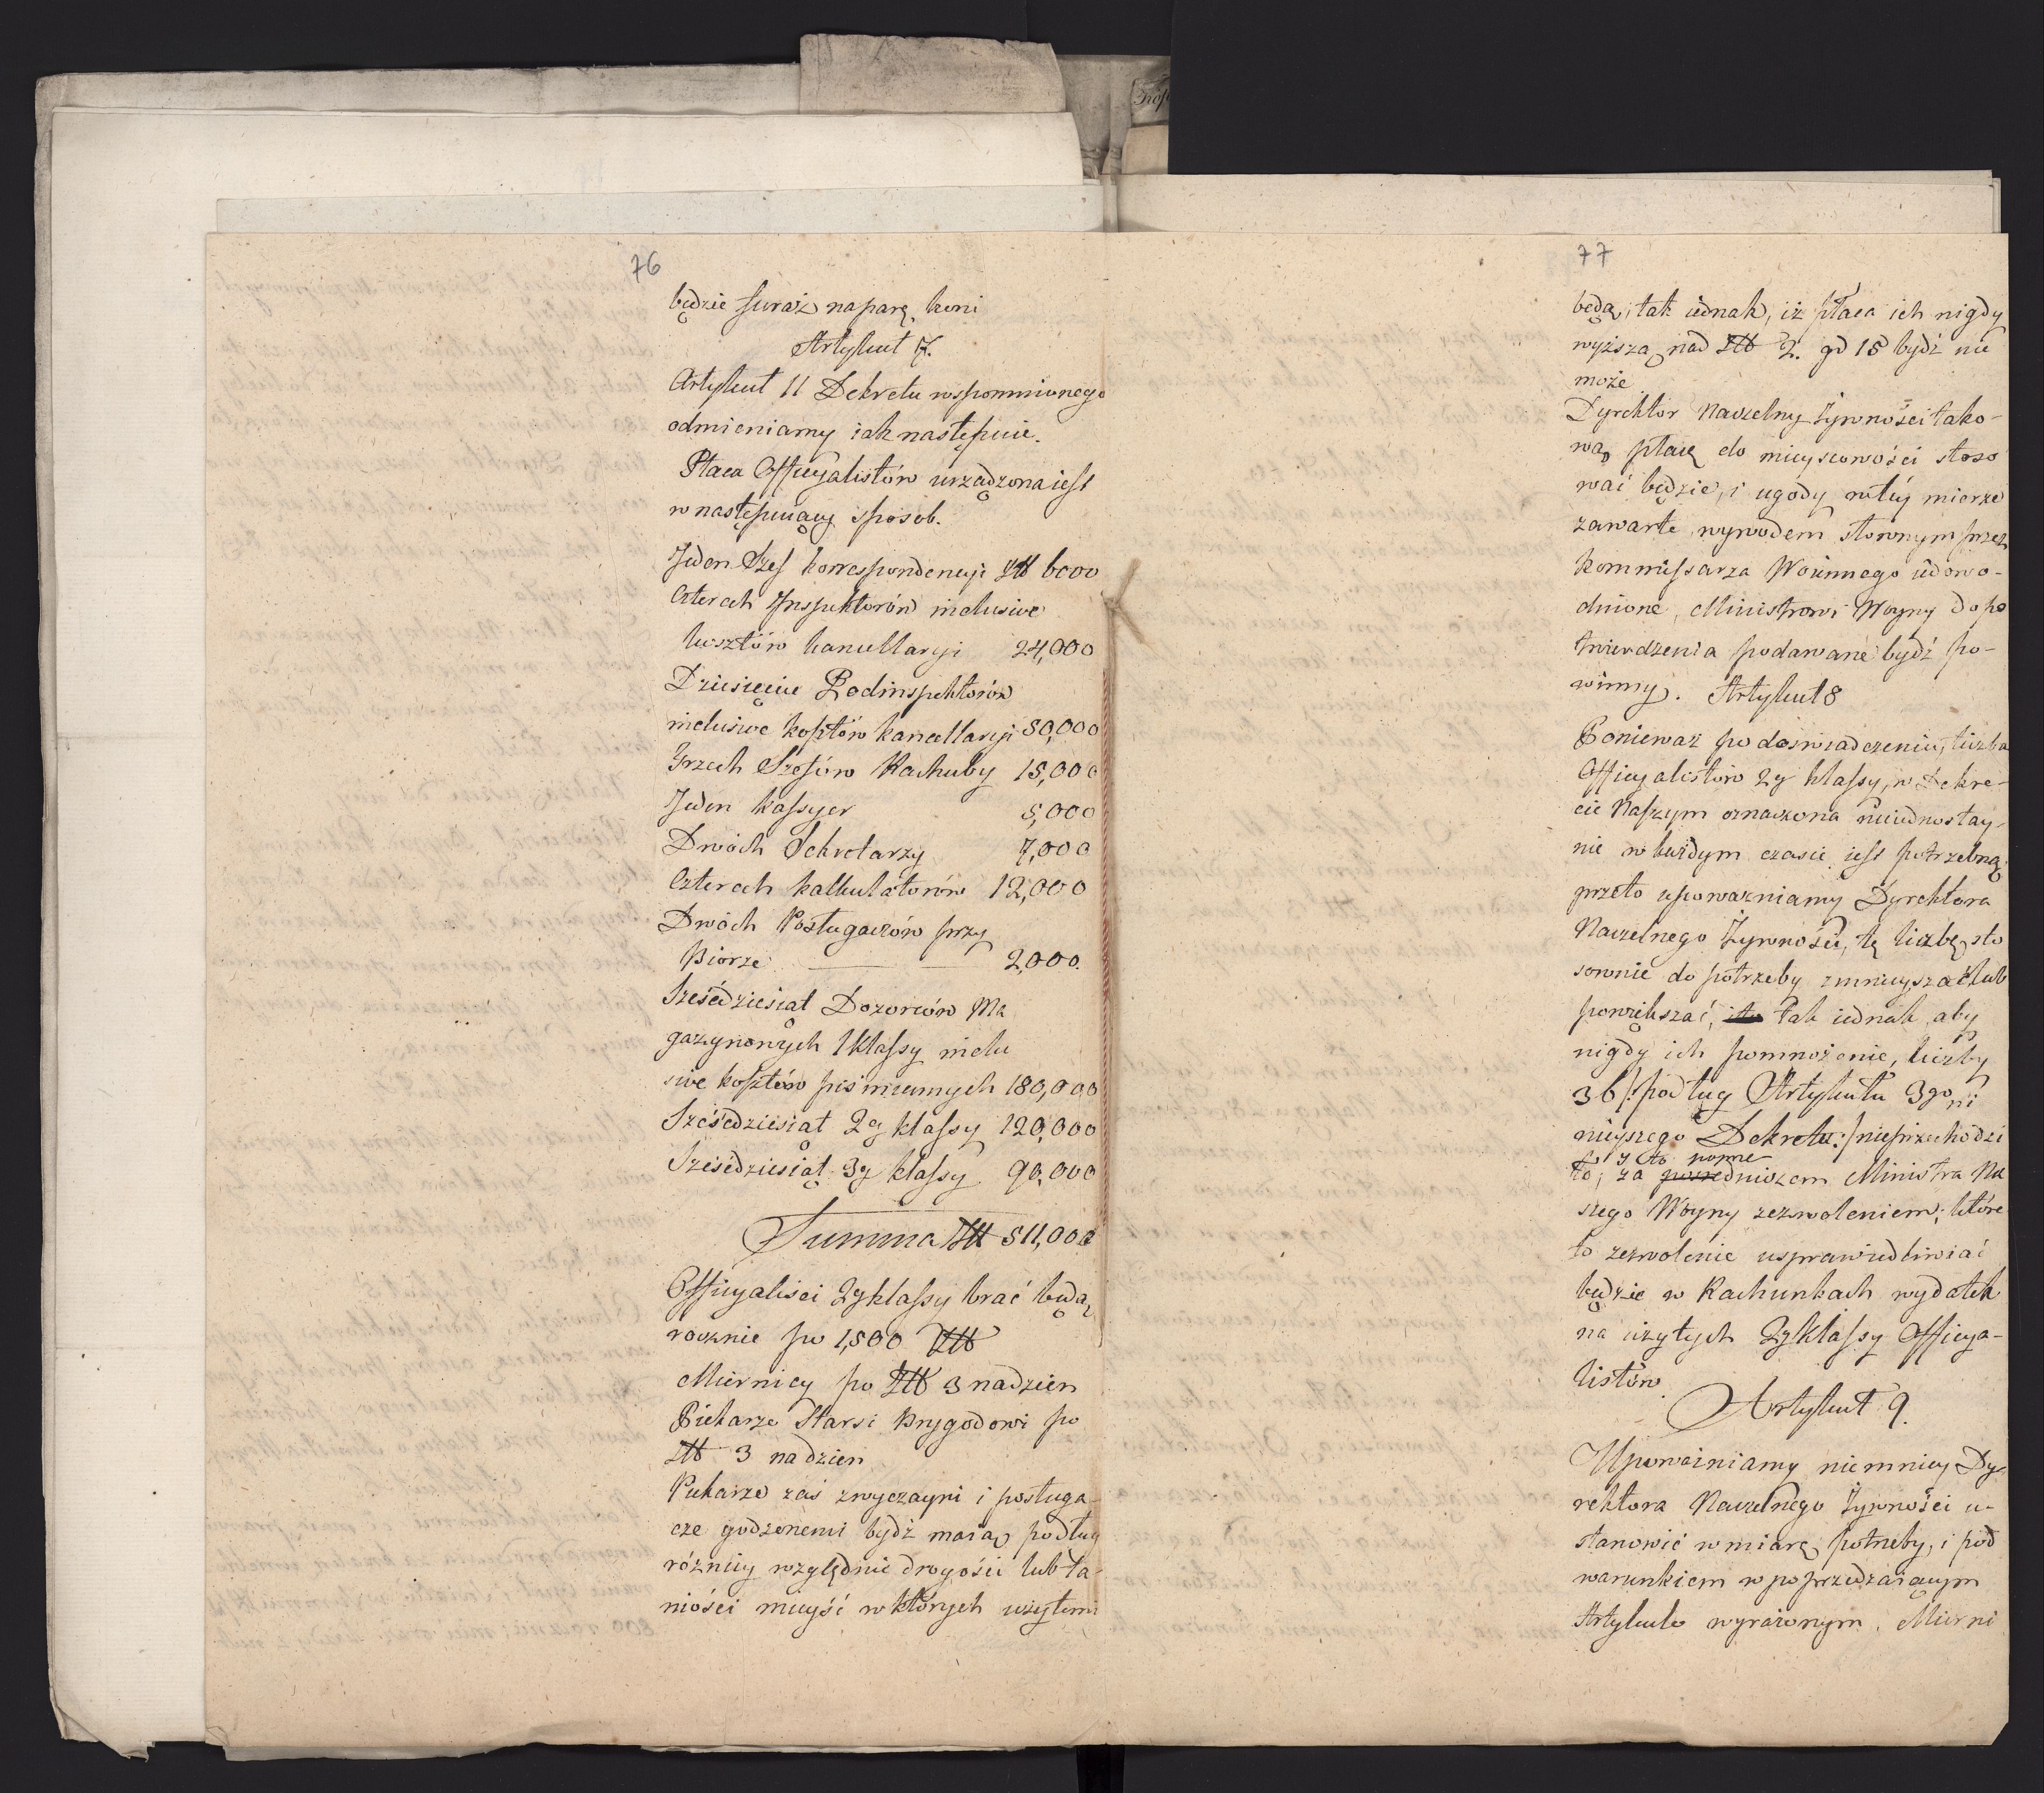 76
będzie furaż na parę koni
Artykuł 7.
Artykuł 11 Dekretu wspomnionego
odmieniamy iak następuie.
Płaca Officyalistów urządzona iest
w następuiący sposób.
Jeden Szef korrespondencyi Złł 6000
Czterech Inspektorów inclusive
kosztów kancellaryi 24,000
Dziesięciu Podinspektorów
inclusive kosztów kancellaryi 50,000
Trzech Szefów Rachuby 15,000
Jeden kassyer 5,000
Dwóch Sekretarzy 7,000
Czterech kalkulatorów 12,000
Dwóch Posługaczów przy
Biorze 2,000.
Sześćdziesiąt Dozorców Ma
gazynowych 1 klassy inclu
sive kosztów piśmiennych 180,000
Sześćdziesiąt 2gi klassy 120,000
Sześćdziesiąt 3gi klassy 90,000
Summa Złł 511,000
Officyaliści 2gi klassy brać będą
rocznie po 1,500 Złł
Miernicy po Złł 3 na dzień
Piekarze Starsi Brygadowi po
Złł 3 na dzień
Piekarze zaś zwyczayni i posługa-
cze godzonemi bydź maią podług
różnicy względnie drogości lub ta-
niości mieysć w których użytemi
77
będą, tak iednak, iż płaca ich nigdy
wyższą nad Złł 2. gd 15 bydź nie
może
Dyrektor Naczelny Żywności tako-
wą płacę do mieyscowości stoso
wać będzie, i ugody w téy mierze
zawarte wywodem słownym przez
Kommissarza Woiennego udowo-
dnione, Ministrowi Woyny do po
twierdzenia podawane bydź po-
winny. Artykuł 8
Ponieważ po doświadczeniu, liczba
Officyalistów 2gi klassy, w Dekre-
cie Naszym oznaczona nieiednostay-
nie w każdym czasie iest potrzebną
przeto upoważniamy Dyrektora
Naczelnego Żywności, tę liczbę sto
sownie do potrzeby zmnieyszać lub
powiększać, tak iednak, aby
nigdy ich pomnożenie, liczby
36 /: podług Artykułu 3go ni
nieyszego Dekretu :/ nieprzechodzi
ło, y to za poprzedniczem Ministra Na
szego Woyny zezwoleniem; które
to zezwolenie usprawiedliwiać
będzie w Rachunkach wydatek
na użytych 2gi klassy Officya-
listów.
Artykuł 9.
Upoważniamy niemniey Dy-
rektora Naczelnego Żywności u-
stanowić w miarę potrzeby, i pod
warunkiem w poprzedzaiącym
Artykule wyrażonym, Mierni